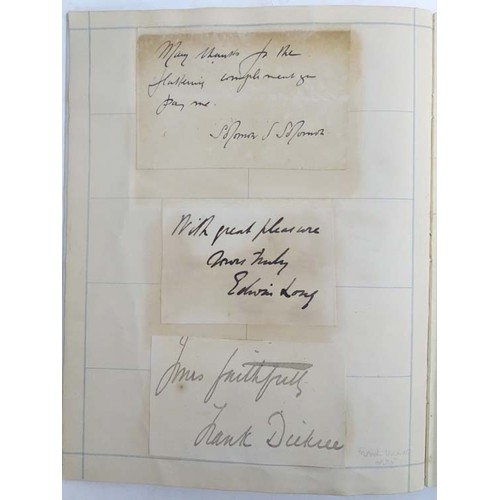 Many thanks for the
flattering compliment you
pay me.
Solomon J Solomon
With great pleasure
Yours truly
Edwin Long
Yours faithfully
Frank Dicksee